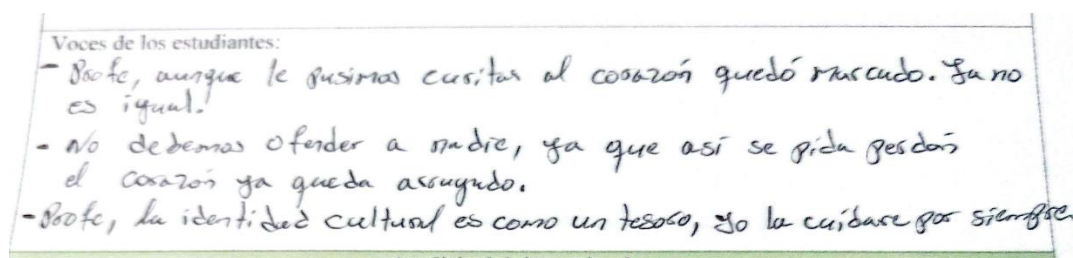 Voces de los estudiantes:
- Profe, aunque le pusimos curitas al corazón quedó marcado. Ya no
es igual.
- No debemos ofender a nadie, ya que así se pida perdón
el corazón ya queda arrugado.
- Profe, la identidad cultural es como un tesoro, yo la cuidare por siempre